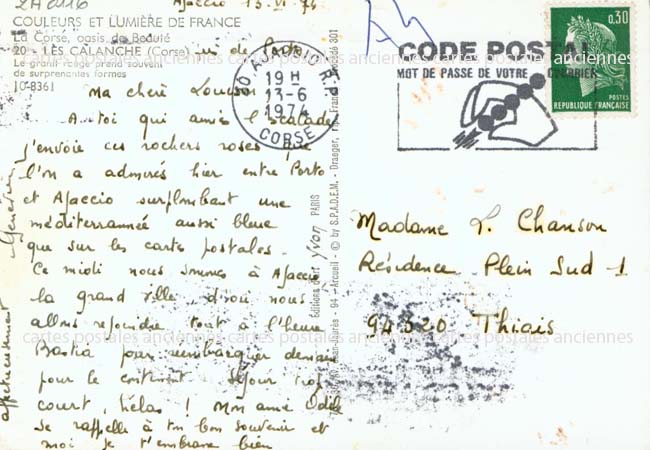 2A0116
Ajaccio 13.VI.74
COULEURS ET LUMIÈRE DE FRANCE
La Corse, oasis de Beauté
20 - LES CALANCHE (Corse) de Porto
Le granit rouge prend souvent
de surprenantes formes
10-8361
Ma chère
A toi qui aimes l'escalade
j'envoie ces rochers roses que
l'on a admirés hier entre Porto
et Ajaccio surplombant une
méditerrannée aussi bleue
que sur les cartes postales.
Ce midi nous sommes à Ajaccio
la grand ville, d'où nous
allons rejoindre tout à l'heure
Bastia pour rembarquer demain
pour le continent. Séjour trop
court, hélas ! Mon amie Odile
se rappelle à ton bon souvenir et
moi je t'embrasse bien
affectueusement
Geneviève
Éditions d'art Yvon PARIS
94 - Arcueil - © by S.P.A.D.E.M. - Draeger
AJACCIO R.P.
19 H
13-6
1974
CORSE
CODE POSTAL
MOT DE PASSE DE VOTRE COURRIER
0,30
POSTES
REPUBLIQUE FRANÇAISE
Madame L. Chanson
Résidence Plein Sud - 1
94320 Thiais
cartes postales anciennes cartes postales anciennes cartes postales anciennes
cartes postales anciennes cartes postales anciennes cartes postales anciennes